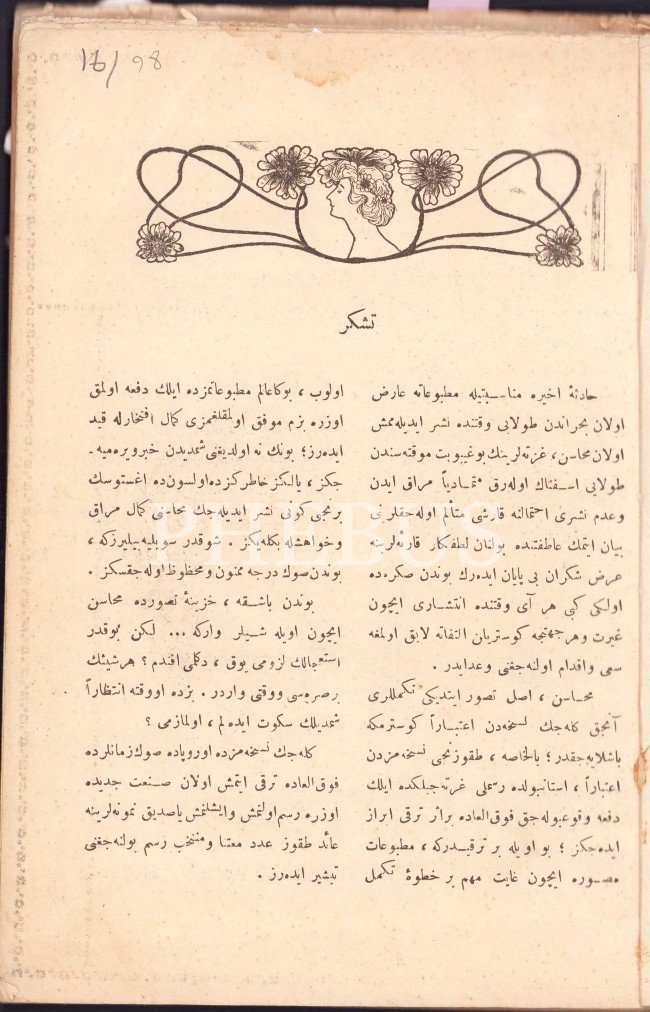 16/98
تشكر
حادثهٔ اخیره مناسبتیله مطبوعاته عارض
اولان بحراندن طولایی وقتنده نشر ایدیله‌مش
اولان محاسن، غزته‌لرینك بو غیبوبت موقته‌سندن
طولایی اسفناك اوله‌رق متمادیاً مراق ایدن
وعدم نشری احتمالنه قارشی متألم اوله‌جقلرینی
بیان ایتمك عاطفتنده بولنان لطفكار قارئه‌لرینه
عرض شكران بی پایان ایده‌رك بوندن صكره‌ده
اولكی كبی هر آی وقتنده انتشاری ایچون
غیرت وهر جهتجه كوستریلن التفاته لایق اولمغه
سعی واقدام اولنه‌جغنی وعدایدر .
محاسن ، اصل تصور ایتدیكی تكمللری
آنجق كله‌جك نسخه‌دن اعتباراً كوسترمكه
باشلایه‌جقدر؛ بالخاصه ، طقوزنجی نسخه‌مزدن
اعتباراً ، استانبولده رسملی غزته‌جیلكده ایلك
دفعه وقوعبوله‌جق فوق‌العاده براثر ترقی ابراز
ایده‌جكز ؛ بو اویله بر ترقیدركه ، مطبوعات
مصوره ایچون غایت مهم بر خطوهٔ تكمل
اولوب ، بوكا عالم مطبوعاتمزده ایلك دفعه اولمق
اوزره بزم موفق اولمقلغمزی كمال افتخارله قید
ایده‌رز؛ بونك نه اولدیغنی شمدیدن خبرویره‌میه-
جكز ، یالكز خاطركزده‌اولسون‌ده اغستوسك
برنجی كونی نشر ایدیله‌جك محاسنی كمال مراق
وخواهشله بكله‌یكز . شوقدر سویلیه‌بیلیرزكه ،
بوندن صوك درجه ممنون ومحظوظ اوله‌جقسكز .
بوندن باشقه ، خزینهٔ تصورده محاسن
ایچون اویله شیلر واركه ... لكن بوقدر
استعجالك لزومی یوق ، دكلمی افندم ؟ هرشیئك
برصره‌سی ووقتی واردر . بزده اووقته انتظاراً
شمدیلك سكوت ایده‌لم ، اولمازمی ؟
كله‌جك نسخه‌مزده اوروپاده صوك زمانلرده
فوق‌العاده ترقی ایتمش اولان صنعت جدیده
اوزره رسم‌اولنمش وایشلنمش یاصدیق نمونه‌لرینه
عائد طقوز عدد معتنا ومنتخب رسم بولنه‌جغنی
تبشیر ایده‌رز .
PHEBUS